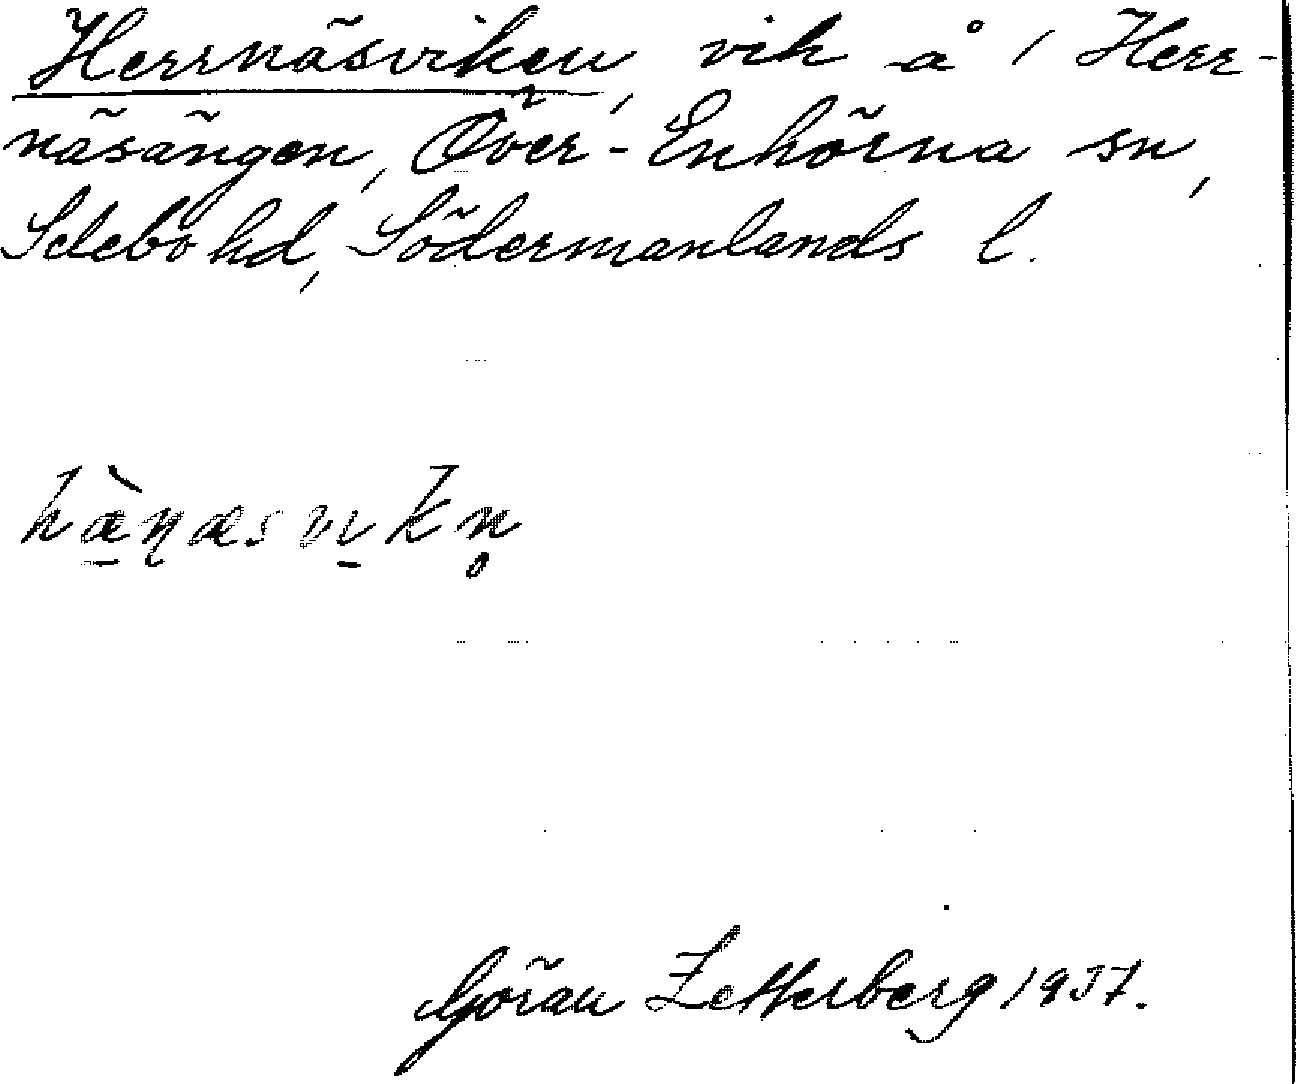 Herrnäsviken, vik å i Herr-
näsängen, Över-Enhörna sn,
Selebo hd, Södermanlands l.
hæ̠̀ɳæsvi̠kn̥
Göran Zetterberg 1937.